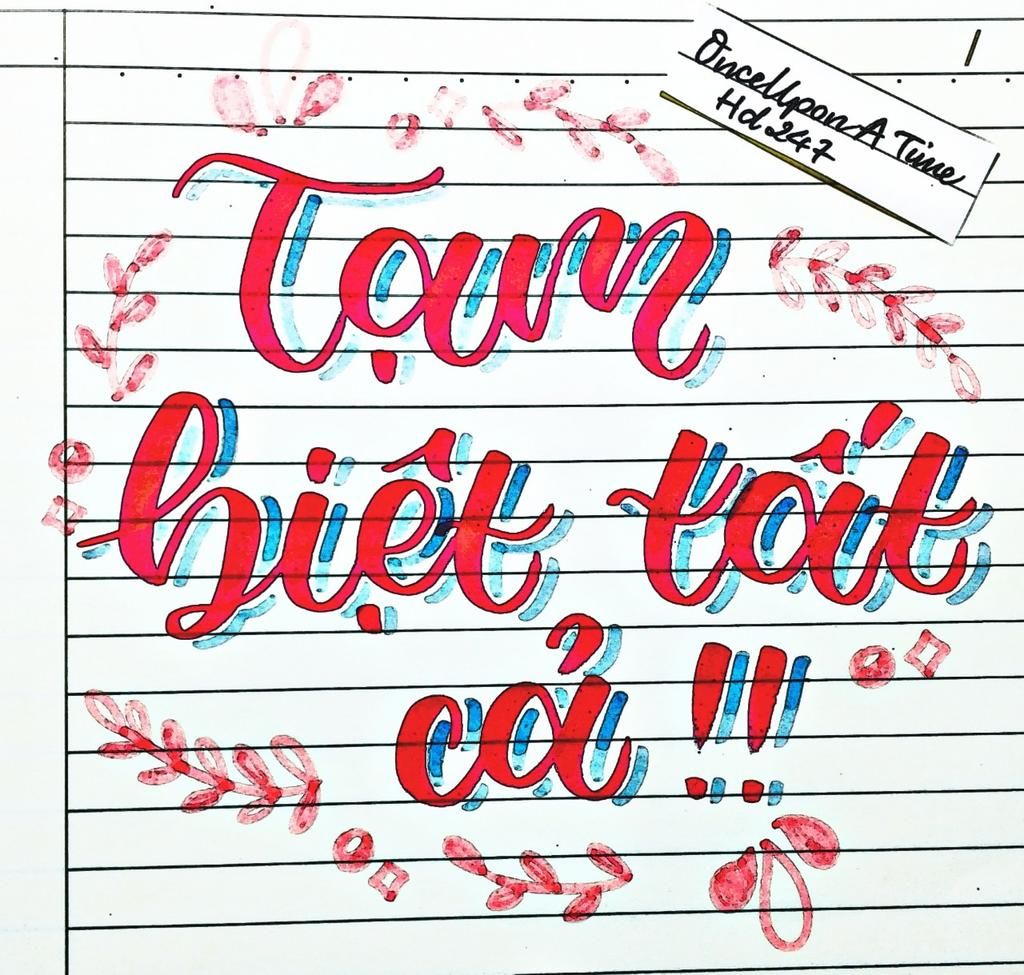 OnceUpon A Time
Hd 247
Tạm
biệt tất
cả !!